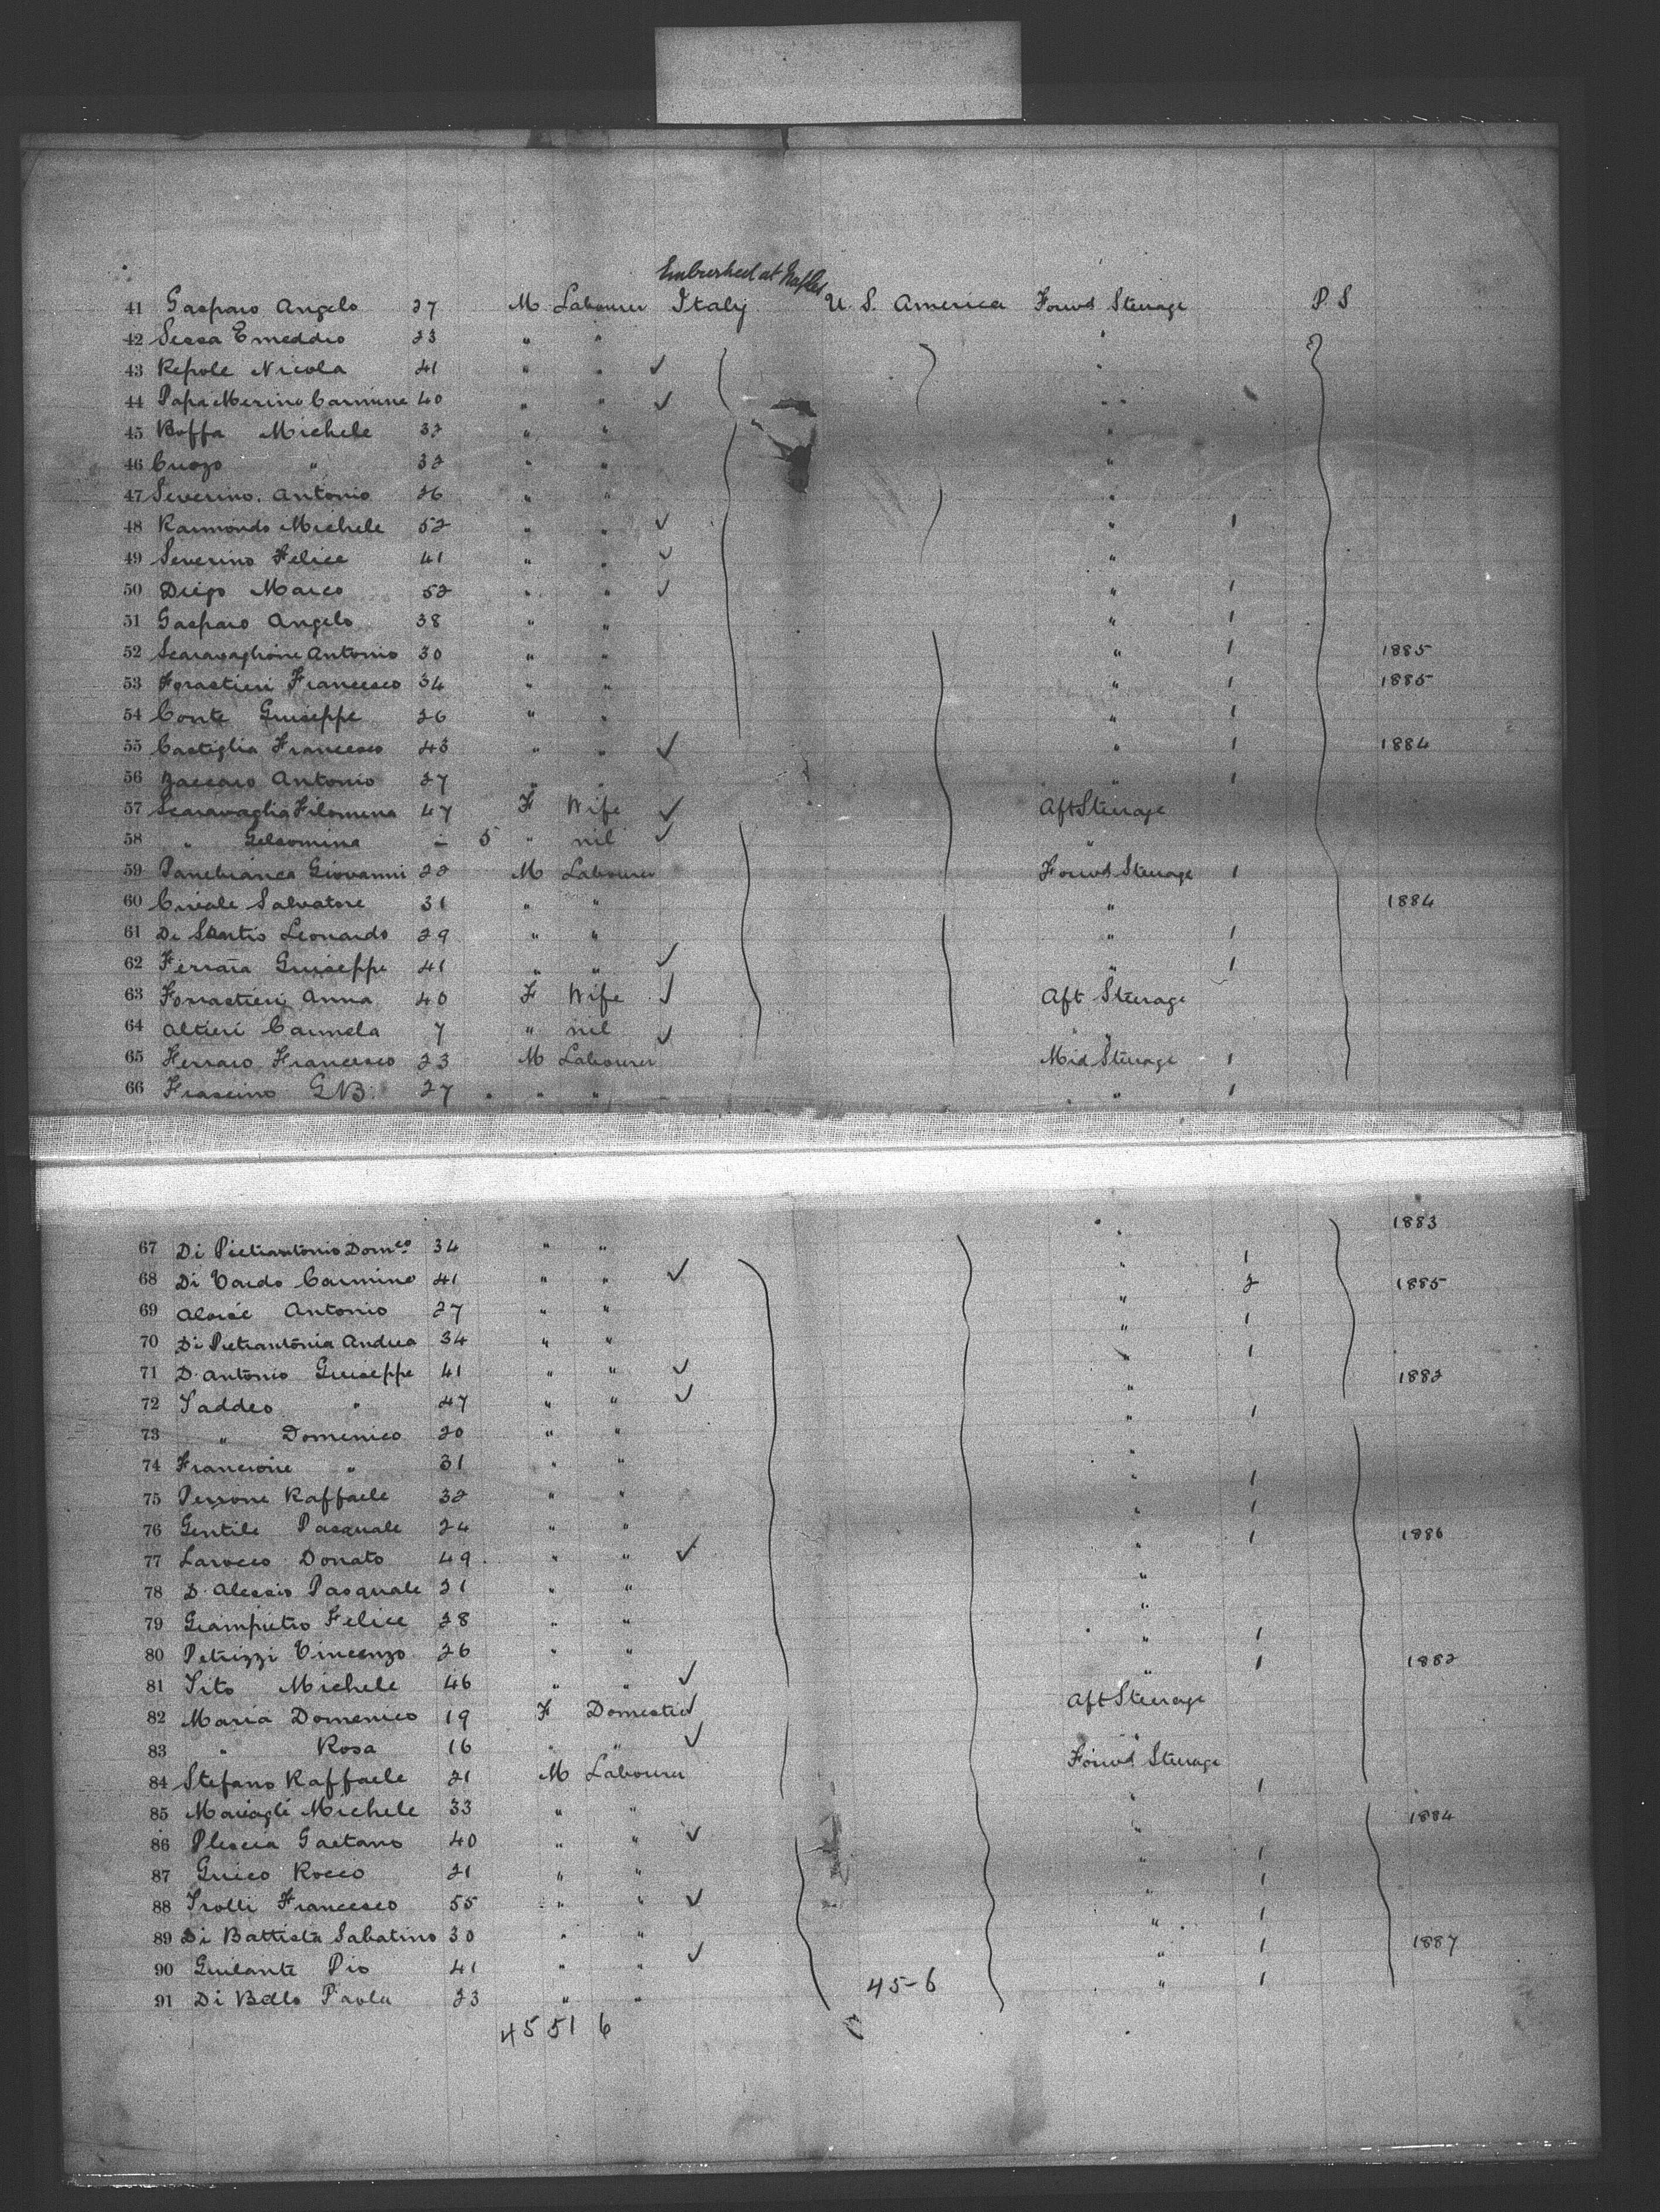 Embarked at Naples
41 Gasparo Angelo 27 M Labourer Italy U. S. America Forwd Sterage P. S
42 Sessa Emeddio 23 " " "
43 Repole Nicola 41 " " ✓ "
44 Papa Merino Carmine 40 " " ✓ " "
45 Boffa Michele 32 " " "
46 Cuozo " 32 " " "
47 Severino. Antonio 26 " " "
48 Raimondo Michele 52 " " ✓ " 1
49 Severino Felice 41 " " ✓ "
50 Diego Marco 52 " " ✓ " 1
51 Gasparo Angelo 38 " " " 1
52 Scaravaglione Antonio 30 " " " 1 1885
53 Forastieri Francesco 34 " " " 1 1885
54 Conte Guiseppe 26 " " " 1
55 Castiglia Francesco 43 " " ✓ " 1 1884
56 Zaccaro Antonio 27 " " " 1
57 Scaravaglia Filomena 47 F Wife ✓ Aft Sterage
58 " Gelsomina - 5 " nil ✓ "
59 Panebianca Giovanni 22 M Labourer Forwd Sterage 1
60 Cireale Salvatore 31 " " " 1884
61 De Santis Leonardo 29 " " " 1
62 Ferrara Guiseppe 41 " " ✓ " 1
63 Forrastieri Anna 40 F Wife ✓ Aft Sterage
64 Altieri Carmela 7 " nil ✓ " "
65 Ferraro Francesco 23 M Labourer Mid Sterage 1
66 Frascino G.B. 27 " " " 1
67 Di Pietrantonio Domco 34 " " " 1 1883
68 Di Vardo Carmino 41 " " ✓ " 2 1885
69 Aloisé Antonio 27 " " " 1
70 Di Pietrantonia Andrea 34 " " " 1
71 D. Antonio Guiseppe 41 " " ✓ " 1882
72 Taddeo " 47 " " ✓ " 1
73 " Domenico 20 " " "
74 Francione " 31 " " " 1
75 Perrone Raffaele 32 " " " 1
76 Gentile Pasquale 24 " " " 1 1886
77 Larocco Donato 49 " " ✓ "
78 D. Alessio Pasquale 21 " " "
79 Giampietro Felice 28 " " " 1
80 Petrizzi Vincenzo 26 " " " 1 1882
81 Tito Michele 46 " " ✓
82 Maria Domenico 19 F Domestic ✓ Aft Sterage
83 " Rosa 16 " " ✓ "
84 Stefano Raffaele 21 M Labourer Forwd Sterage 1
85 Michele 33 " " " 1884
86 Plescia Gaetano 40 " " ✓ " 1
87 Guico Rocco 21 " " " 1
88 Trolli Francesco 55 " " ✓ " 1
89 Di Battista Sabatino 30 " " " 1 1887
90 Guilante Pio 41 " " ✓ " 1
91 Di Bello Paola 23 " "
45-6
45 51 6